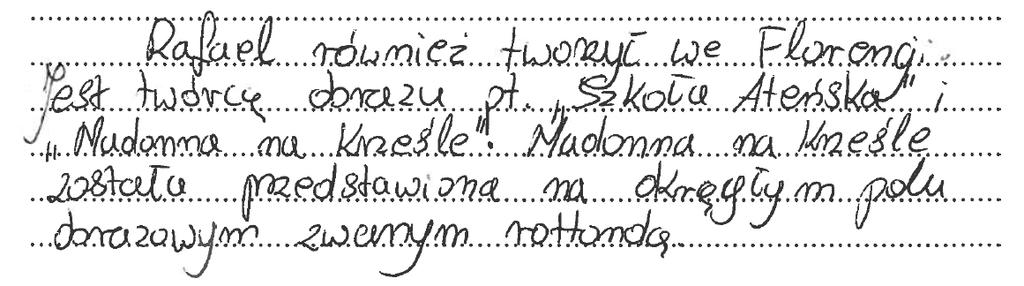 Rafael również tworzył we Florencji.
Jest twórcą obrazu pt. „Szkoła Ateńska" i
„Madonna na krześle". Madonna na krześle
została przedstawiona na okrągłym polu
obrazowym zwanym rottondą